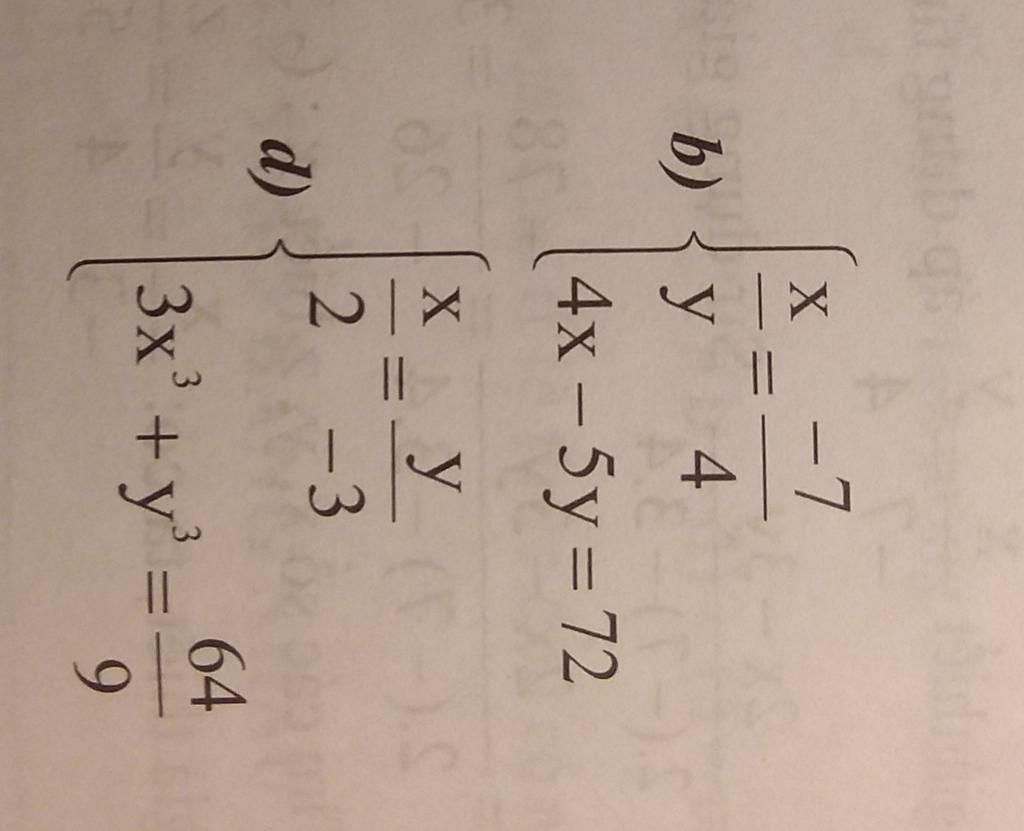 b) { x/y = -7/4
4x - 5y = 72
d) { x/2 = y/-3
3x³ + y³ = 64/9